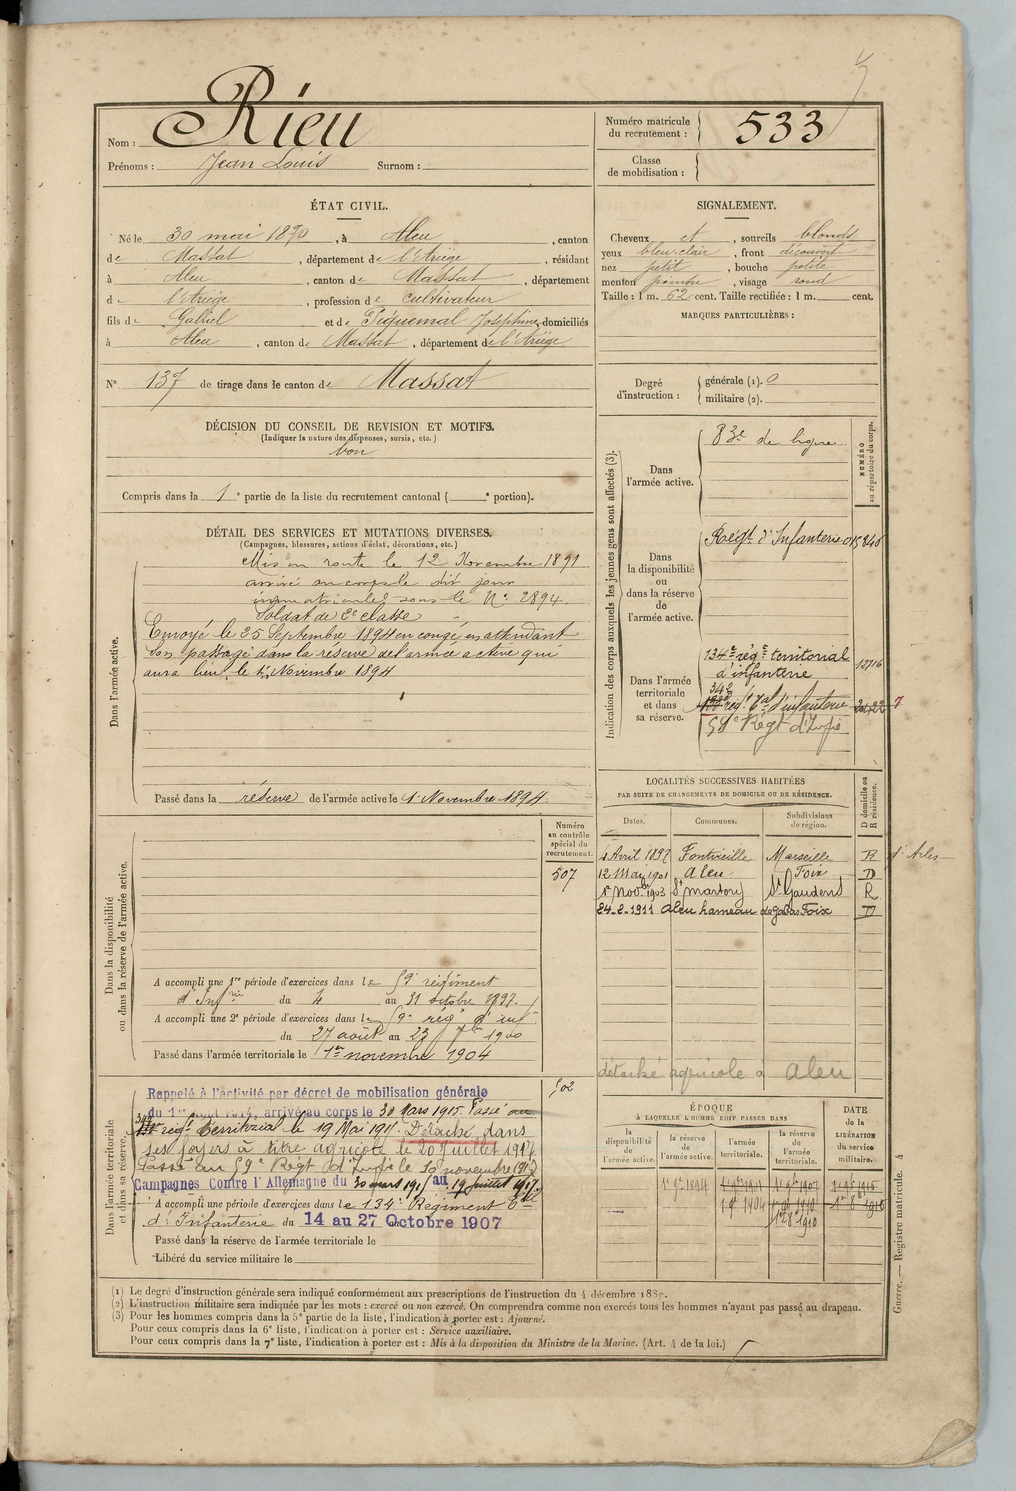 Nom : Rieu
Prénoms : Jean Louis Surnom :
Numéro matricule du recrutement : 533
Classe de mobilisation :
ÉTAT CIVIL.
Né le 30 mai 1870, à Aleu, canton
de Massat, département de l'Ariège, résidant
à Aleu, canton de Massat, département
de l'Ariège, profession de cultivateur
fils de Gabriel et de Piquemal Josephine, domiciliés
à Aleu, canton de Massat, département de l'Ariège
N° 137 de tirage dans le canton de Massat
SIGNALEMENT.
Cheveux et, sourcils blonds
yeux bleu-clair, front découvert
nez petit, bouche petite
menton pointu, visage rond
Taille : 1 m. 62 cent. Taille rectifiée : 1 m. cent.
MARQUES PARTICULIÈRES :
Degré d'instruction : générale (1). 0
militaire (2).
DÉCISION DU CONSEIL DE REVISION ET MOTIFS.
(Indiquer la nature des dispenses, sursis, etc.)
bon
Compris dans la 1e partie de la liste du recrutement cantonal ( e portion).
DÉTAIL DES SERVICES ET MUTATIONS DIVERSES.
(Campagnes, blessures, actions d'éclat, décorations, etc.)
Dans l'armée active.
Mis en route le 12 Novembre 1891
arrivé au corps le dit jour
immatriculé sous le N° 2894.
Soldat de 2e classe
Envoyé le 25 Septembre 1894 en congé en attendant
son passage dans la réserve de l'armée active qui
aura lieu le 1r Novembre 1894
Passé dans la réserve de l'armée active le 1r Novembre 1894
Indication des corps auxquels les jeunes gens sont affectés (3).
NUMÉRO au répertoire du corps.
Dans l'armée active.
83e de ligne
Dans la disponibilité ou dans la réserve de l'armée active.
Régt d'Infanterie
Dans l'armée territoriale et dans sa réserve.
134e régt territorial
d'infanterie
12716
régt tal d'infanterie
59e Régt d'Infie
LOCALITÉS SUCCESSIVES HABITÉES
PAR SUITE DE CHANGEMENTS DE DOMICILE OU DE RÉSIDENCE.
Dates. Communes. Subdivisions de région. D domicile ou R résidence.
4 Avril 1897 Fontvieille Marseille R d'Arles
12 Mai 1901 Aleu Foix D
1r Nov. 1903 St Martory St Gaudens R
24-2-1911 Aleu hameau de Foix D
détaché agricole à Aleu
Dans la disponibilité ou dans la réserve de l'armée active.
Numéro au contrôle spécial du recrutement.
507
A accompli une 1re période d'exercices dans le 59e régiment
d'Infrie du 4 au 31 octobre 1897.
A accompli une 2e période d'exercices dans le 59e régt d'inf
du 27 août au 23 7re 1900
Passé dans l'armée territoriale le 1er novembre 1904
Dans l'armée territoriale et dans sa réserve.
502
Rappelé à l'activité par décret de mobilisation générale
du 1er août 1914, arrivé au corps le 30 Mars 1915. Passé au
régt territorial le 19 Mai 1915. Détaché dans
ses foyers à titre agricole le 20 Juillet 1917.
Passé au 59e Régt d'Infie le 10 novembre 1917
Campagnes Contre l'Allemagne du 30 mars 1915 au 19 juillet 1917
A accompli une période d'exercices dans le 134e Régiment tal
d'Infanterie du 14 au 27 Octobre 1907
Passé dans la réserve de l'armée territoriale le
Libéré du service militaire le
ÉPOQUE
À LAQUELLE L'HOMME DOIT PASSER DANS
la disponibilité de l'armée active.
la réserve de l'armée active.
l'armée territoriale.
la réserve de l'armée territoriale.
DATE DE LA LIBÉRATION du service militaire.
1r 9bre 1894
Guerre. — Registre matricule. 4
(1) Le degré d'instruction générale sera indiqué conformément aux prescriptions de l'instruction du 4 décembre 1889.
(2) L'instruction militaire sera indiquée par les mots : exercé ou non exercé. On comprendra comme non exercés tous les hommes n'ayant pas passé au drapeau.
(3) Pour les hommes compris dans la 5e partie de la liste, l'indication à porter est : Ajourné.
Pour ceux compris dans la 6e liste, l'indication à porter est : Service auxiliaire.
Pour ceux compris dans la 7e liste, l'indication à porter est : Mis à la disposition du Ministre de la Marine. (Art. 4 de la loi.)